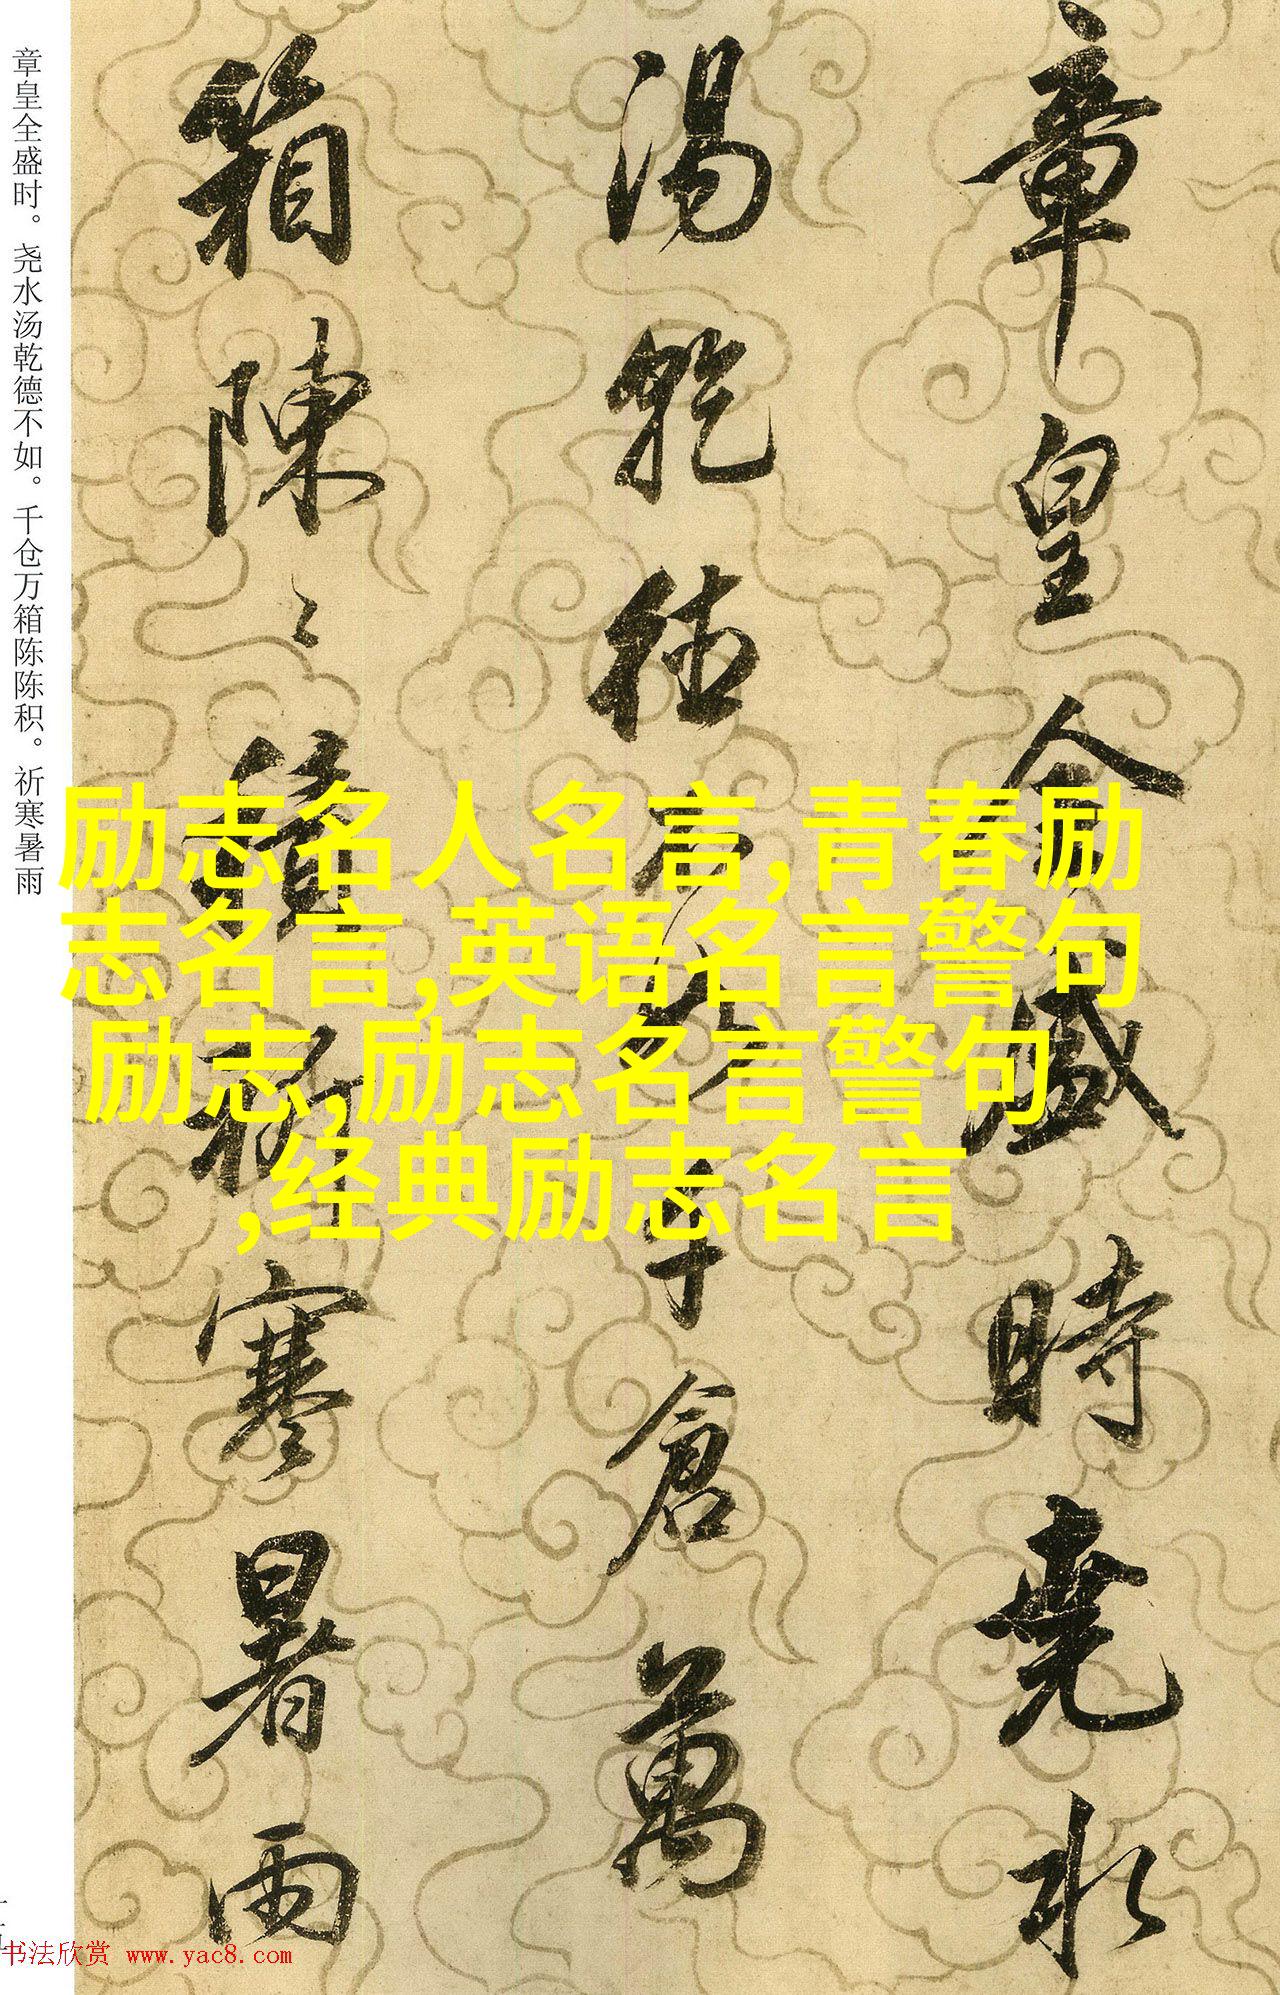 章皇全盛時堯水
湯乾德不如千倉萬
箱陳〻積祈寒暑雨
章皇全盛时。尧水汤乾德不如。千仓万箱陈陈积。祈寒暑雨
励志名人名言,青春励
志名言,英语名言警句
励志,励志名言警句
,经典励志名言
书法欣赏 www.yac8.com